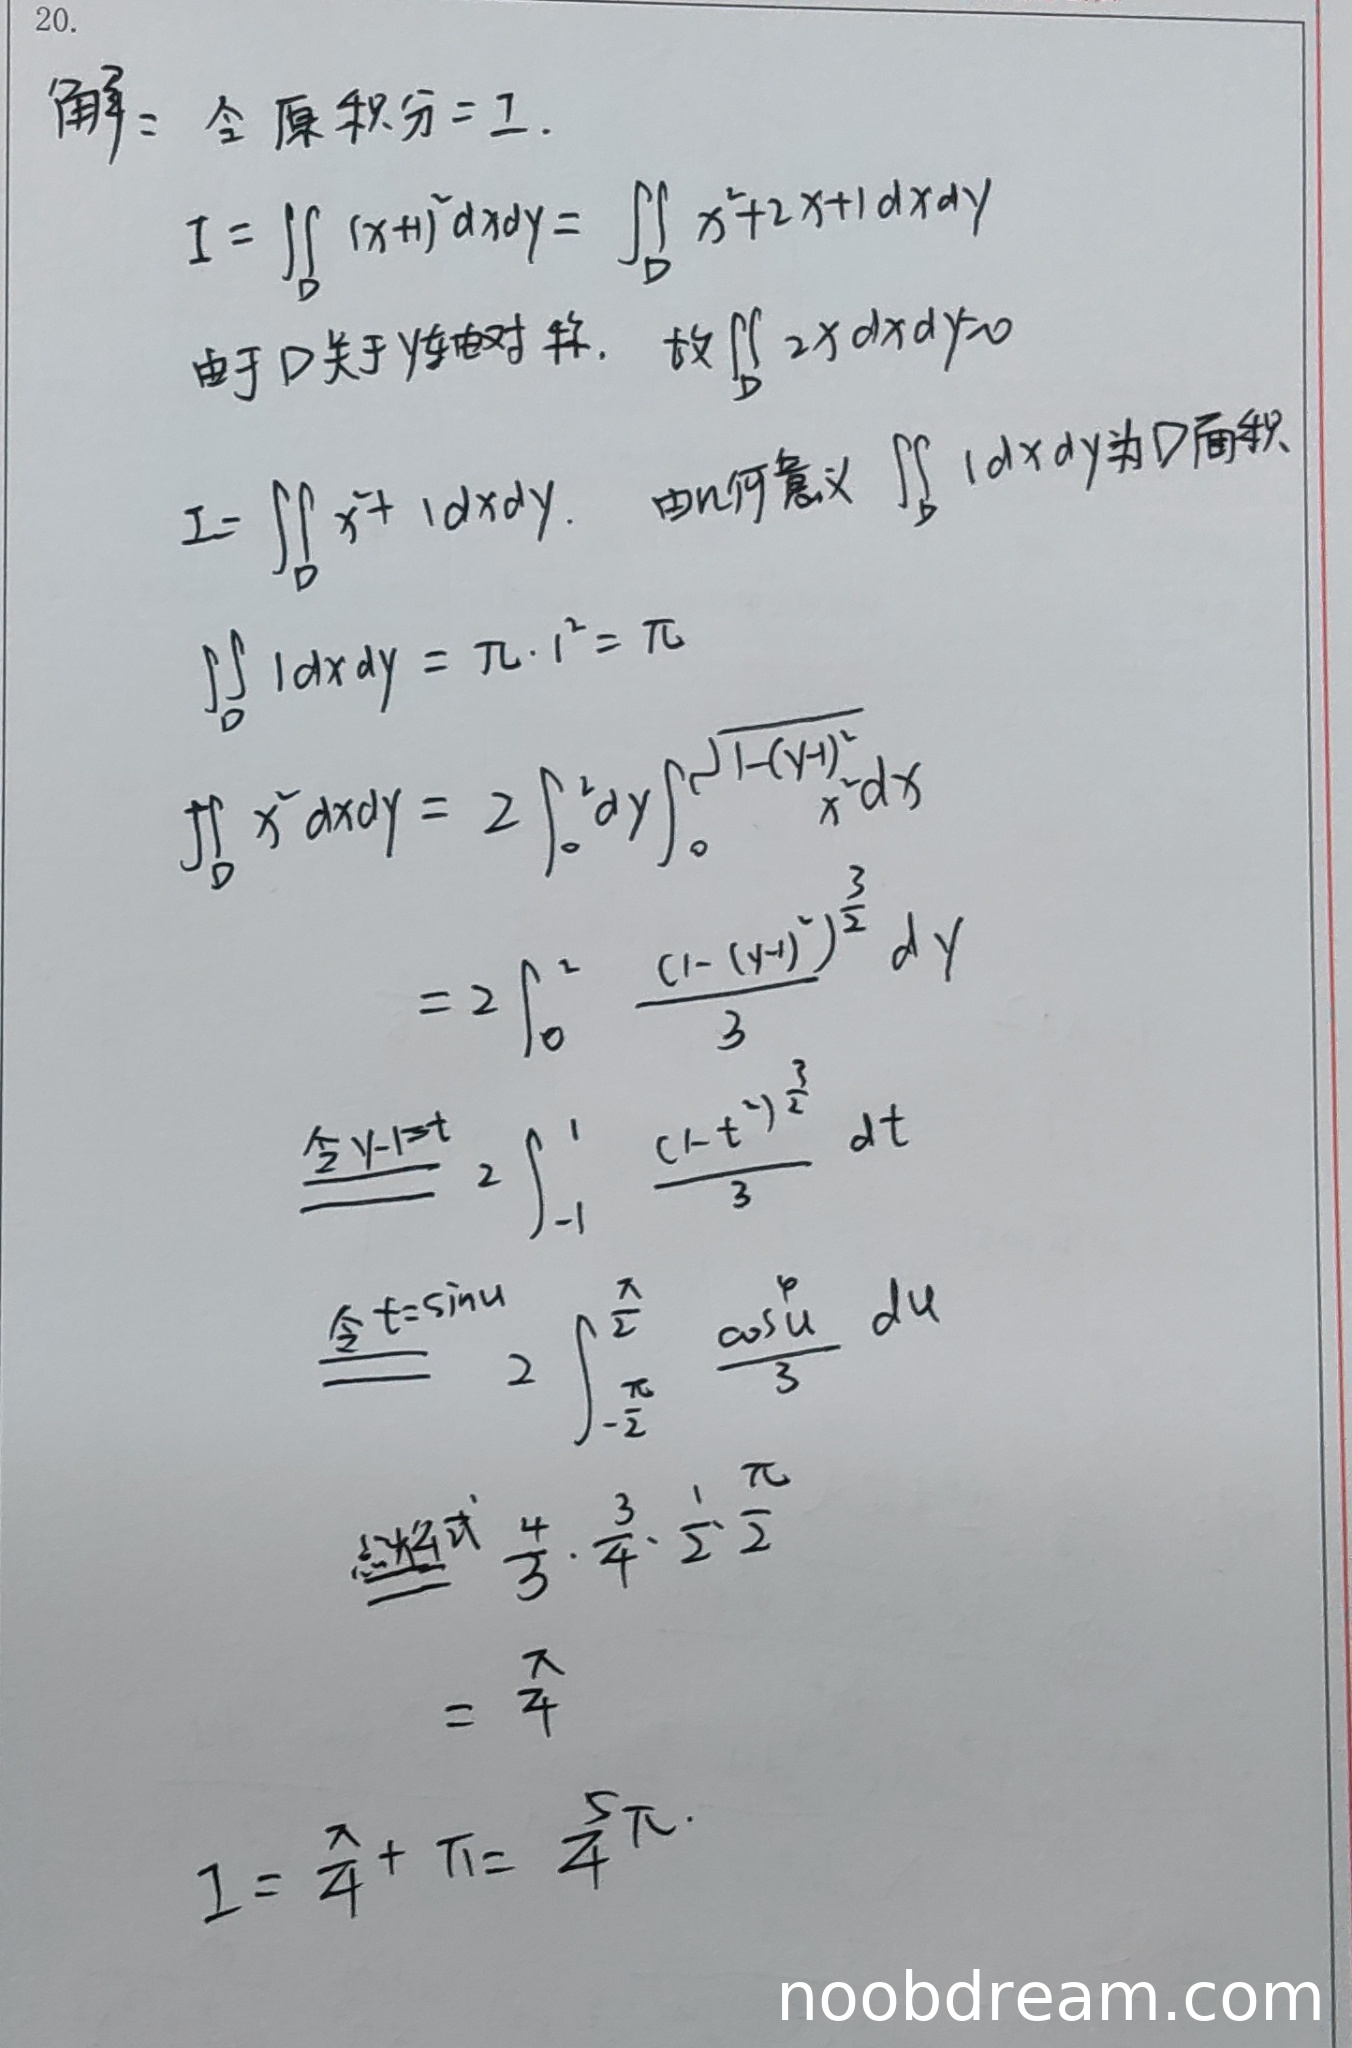 20.
解: 令原积分=I.
I = ∬_D (x+1)² dxdy = ∬_D x²+2x+1 dxdy
由于D关于y轴对称. 故∬_D 2x dxdy=0
I = ∬_D x²+1 dxdy. 由几何意义 ∬_D 1 dxdy为D面积
∬_D 1 dxdy = π·1² = π
∬_D x² dxdy = 2∫_0^2 dy ∫_0^√(1-(y-1)²) x² dx
= 2∫_0^2 (1-(y-1)²)^(3/2)/3 dy
令y-1=t 2∫_{-1}^1 (1-t²)^(3/2)/3 dt
令t=sinu 2∫_{-π/2}^{π/2} cos⁴u/3 du
点火公式 4/3 · 3/4 · 1/2 · π/2
= π/4
I = π/4 + π = 5/4 π.
noobdream.com